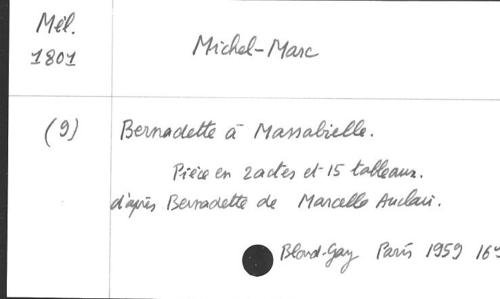 Mél.
1801
Michel-Marc
(9)
Bernadette à Massabielle.
Pièce en 2 actes et 15 tableaux.
d'après Bernadette de Marcelle Auclair.
Bloud-Gay Paris 1959